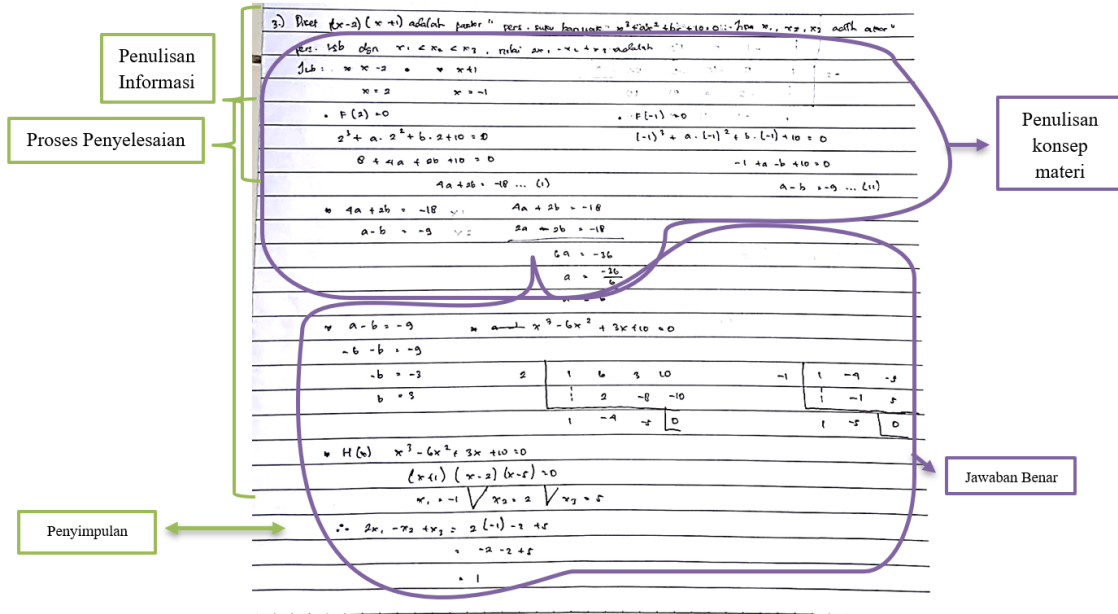 Penulisan
Informasi
Proses Penyelesaian
Penulisan
konsep
materi
Jawaban Benar
Penyimpulan
3.) Diket (x-2) (x+1) adalah faktor" pers. suku banyak x³+ax²+bx+10=0. Jika x₁, x₂, x₃ adlh akar"
pers. tsb dgn x₁ < x₂ < x₃, nilai 2x₁ - x₂ + x₃ adalah
Jwb : * x -2 * x+1
x = 2 x = -1
• F(2) = 0 • F(-1) = 0
2³ + a . 2² + b . 2 + 10 = 0 (-1)³ + a . (-1)² + b . (-1) + 10 = 0
8 + 4a + 2b + 10 = 0 -1 + a - b + 10 = 0
4a + 2b = -18 ... (1) a - b = -9 ... (11)
* 4a + 2b = -18 4a + 2b = -18
a - b = -9 2a - 2b = -18
6a = -36
a = -36/6
* a - b = -9 * x³ - 6x² + 3x + 10 = 0
-6 - b = -9
-b = -3 2 1 6 3 10 -1 1 -4 -5
b = 3 2 -8 -10 -1 5
1 -4 -5 0 1 -5 0
* H(x) x³ - 6x² + 3x + 10 = 0
(x+1) (x-2) (x-5) = 0
x₁ = -1 V x₂ = 2 V x₃ = 5
∴ 2x₁ - x₂ + x₃ = 2 (-1) - 2 + 5
= -2 - 2 + 5
= 1